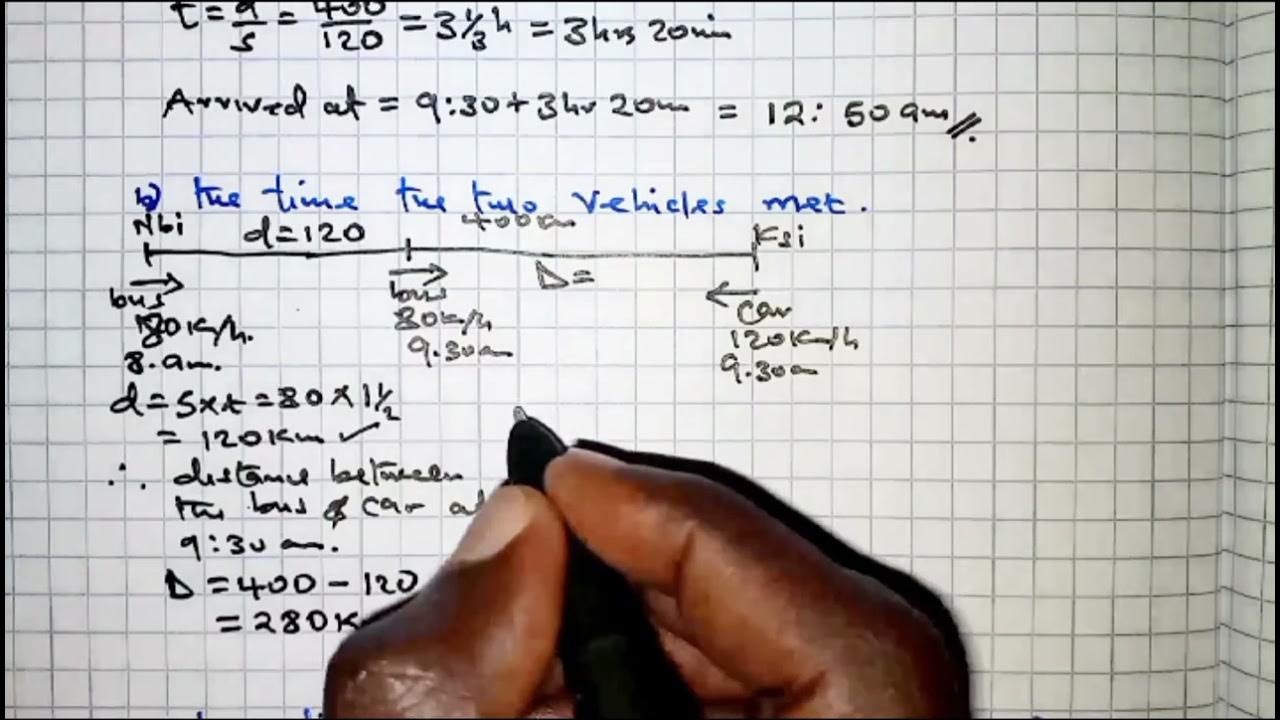 t = d/s = 400/120 = 3 1/3 h = 3 hrs 20 min
Arrived at = 9:30 + 3 hr 20 m = 12: 50 am
b) the time the two vehicles met.
Nbi d=120 400 Ksi
D=
bus bus car
80 km/h. 80 km/h 120 km/h
8. am. 9.30 am 9.30 am
d = s x t = 80 x 1 1/2
= 120 km ✓
∴ distance between
the bus & car at
9:30 am.
D = 400 - 120
= 280 K